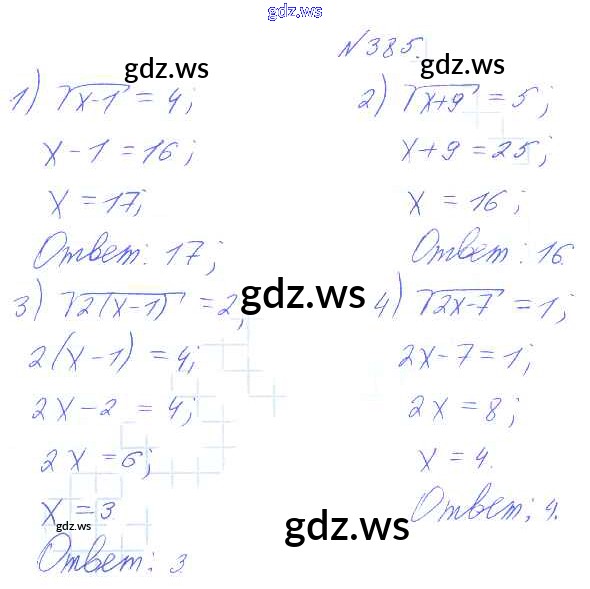 gdz.ws
№385.
gdz.ws
gdz.ws
1) √(x-1) = 4;
x-1 = 16;
x = 17;
Ответ: 17;
2) √(x+9) = 5;
x+9 = 25;
x = 16;
Ответ: 16.
3) √(2(x-1)) = 2;
2(x-1) = 4;
2x-2 = 4;
2x = 6;
x = 3
Ответ: 3
gdz.ws
4) √(2x-7) = 1;
2x-7 = 1;
2x = 8;
x = 4.
Ответ: 4.
gdz.ws
gdz.ws